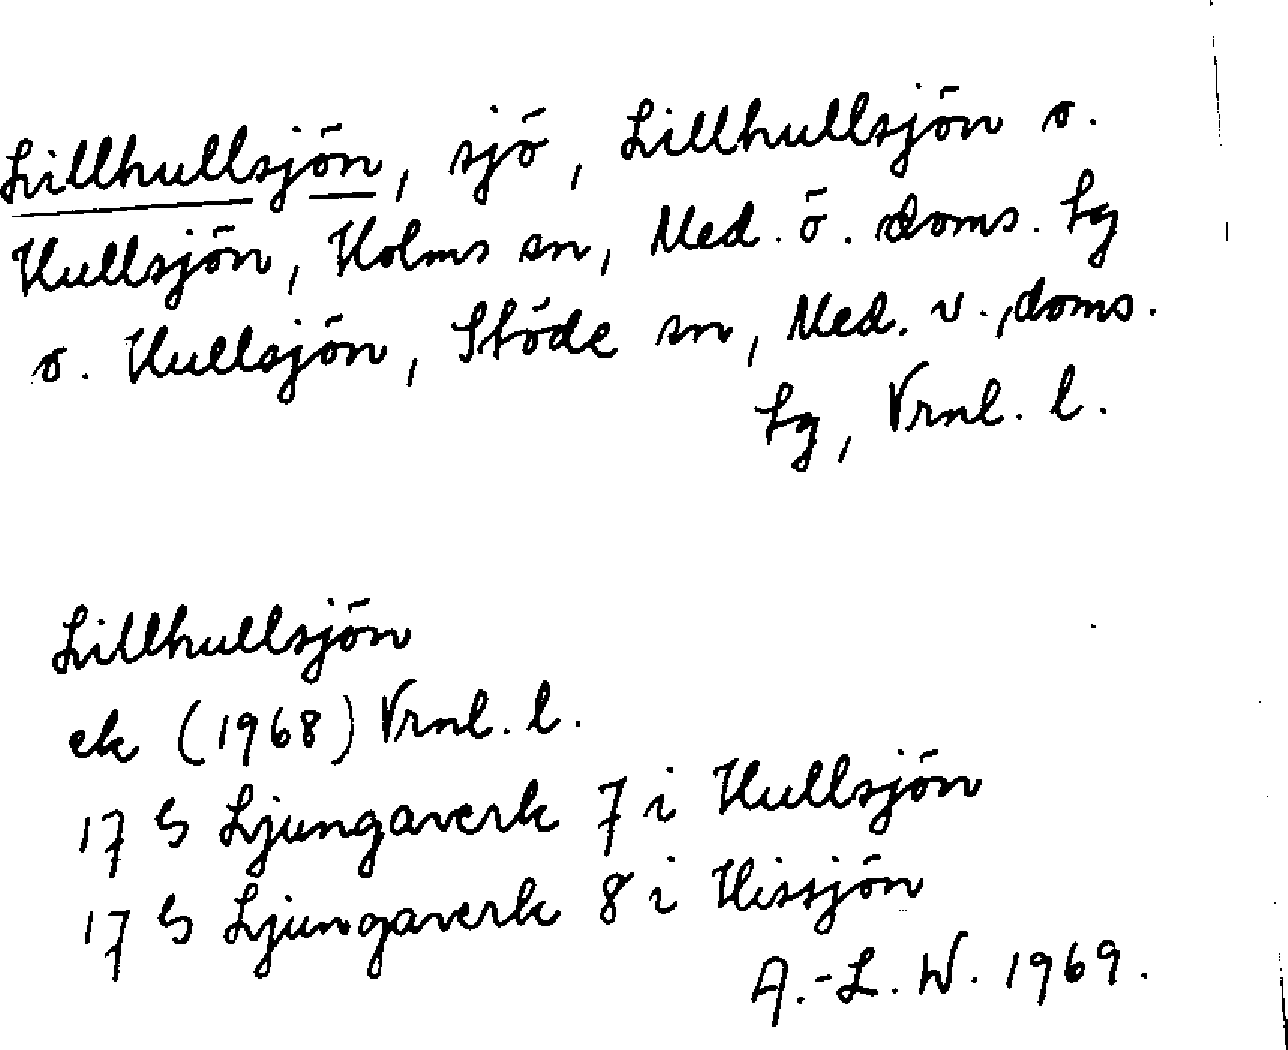 Lillhullsjön, sjö, Lillhullsjön o.
Hullsjön, Holms sn, Med. ö. doms. tg
o. Hullsjön, Stöde sn, Med. v., doms.
tg, Vrnl. l.
Lillhullsjön
ek (1968) Vrnl. l.
17 G Ljungaverk 7 i Hullsjön
17 G Ljungaverk 8 i Hissjön
A.-L. W. 1969.